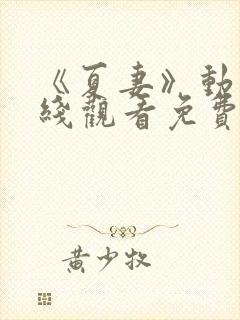 《夏妻》動
綫觀看免費
黄少牧